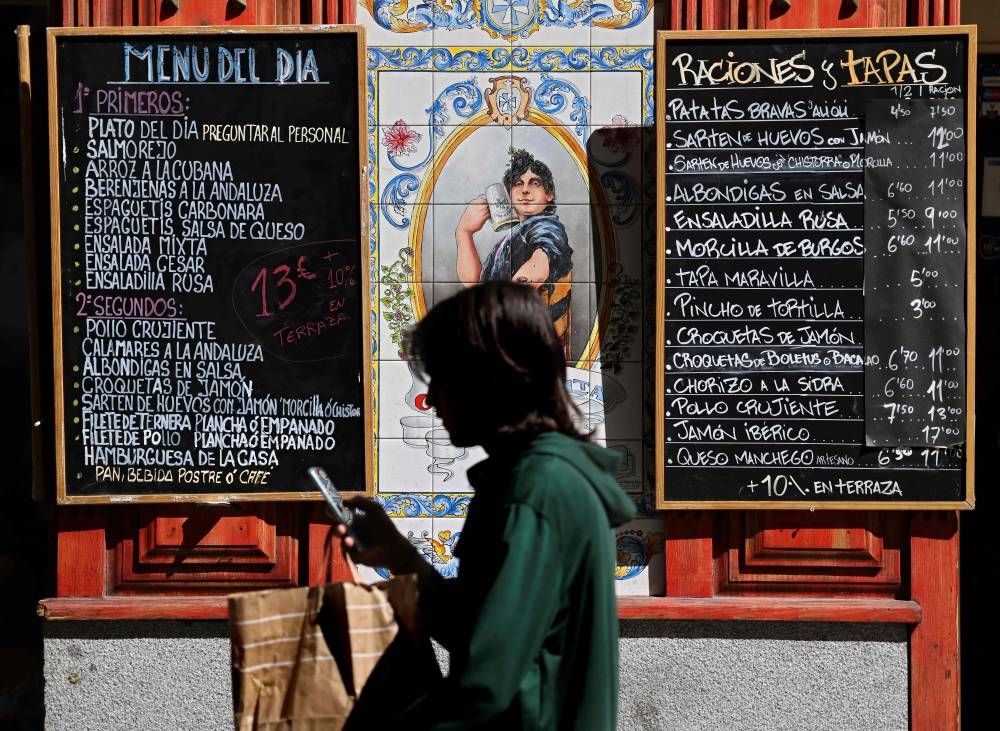 MENU DEL DÍA
1º PRIMEROS:
PLATO DEL DÍA PREGUNTAR AL PERSONAL
SALMOREJO
ARROZ A LA CUBANA
BERENJENAS A LA ANDALUZA
ESPAGUETIS CARBONARA
ESPAGUETIS SALSA DE QUESO
ENSALADA MIXTA
ENSALADA CESAR
ENSALADILLA ROSA
13€ + 10% EN TERRAZA.
2º SEGUNDOS:
POLLO CRUJIENTE
CALAMARES A LA ANDALUZA
ALBONDIGAS EN SALSA
CROQUETAS DE JAMÓN
SARTEN DE HUEVOS CON JAMÓN MORCILLA Ó CHISTOR
FILETE DE TERNERA PLANCHA Ó EMPANADO
FILETE DE POLLO PLANCHA Ó EMPANADO
HAMBURGUESA DE LA CASA
PAN, BEBIDA POSTRE Ó CAFÉ
RACIONES y TAPAS
1/2 1 RACION
PATATAS BRAVAS Ó ALIOLI 4'50 7'50
SARTEN DE HUEVOS CON JAMÓN 12'00
SARTEN DE HUEVOS CON CHISTORRA Ó MORCILLA 11'00
ALBONDIGAS EN SALSA 6'60 11'00
ENSALADILLA RUSA 5'50 9'00
MORCILLA DE BURGOS 6'60 11'00
TAPA MARAVILLA 5'00
PINCHO DE TORTILLA 3'00
CROQUETAS DE JAMÓN
CROQUETAS DE BOLETUS Ó BACALAO 6'70 11'00
CHORIZO A LA SIDRA 6'60 11'00
POLLO CRUJIENTE 7'50 13'00
JAMÓN IBÉRICO 17'00
QUESO MANCHEGO ARTESANO 6'50 11'00
+10% EN TERRAZA